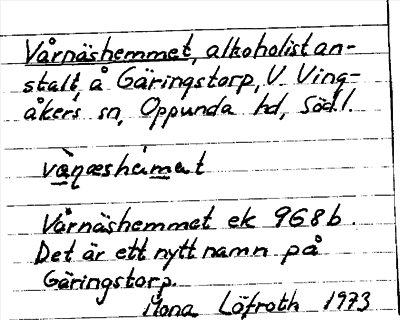 Vårnäshemmet, alkoholistan-
stalt, å Gäringstorp, V. Ving-
åkers sn, Oppunda hd, Södl.
Vårnäshemmet ek 968b.
Det är ett nytt namn på
Gäringstorp.
Mona Löfroth 1973